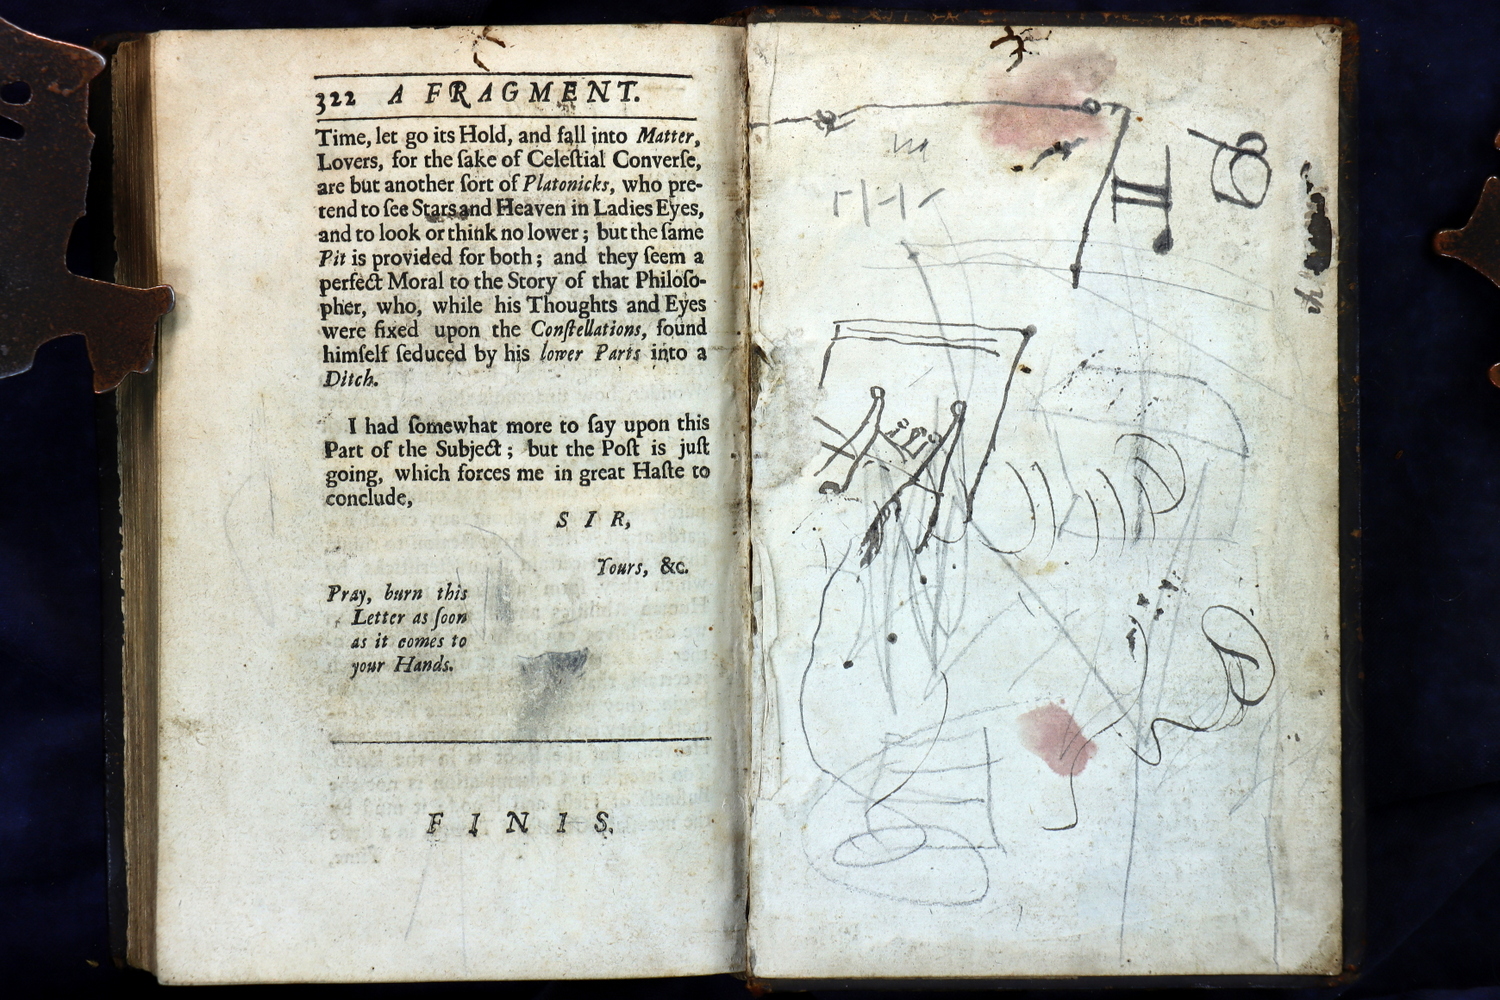 322 A FRAGMENT.
Time, let go its Hold, and fall into Matter,
Lovers, for the ſake of Celeſtial Converſe,
are but another ſort of Platonicks, who pre-
tend to ſee Stars and Heaven in Ladies Eyes,
and to look or think no lower; but the ſame
Pit is provided for both; and they ſeem a
perfect Moral to the Story of that Philoſo-
pher, who, while his Thoughts and Eyes
were fixed upon the Conſtellations, found
himſelf ſeduced by his lower Parts into a
Ditch.
I had ſomewhat more to ſay upon this
Part of the Subject; but the Poſt is juſt
going, which forces me in great Haſte to
conclude,
SIR,
Yours, &c.
Pray, burn this
Letter as ſoon
as it comes to
your Hands.
FINIS.